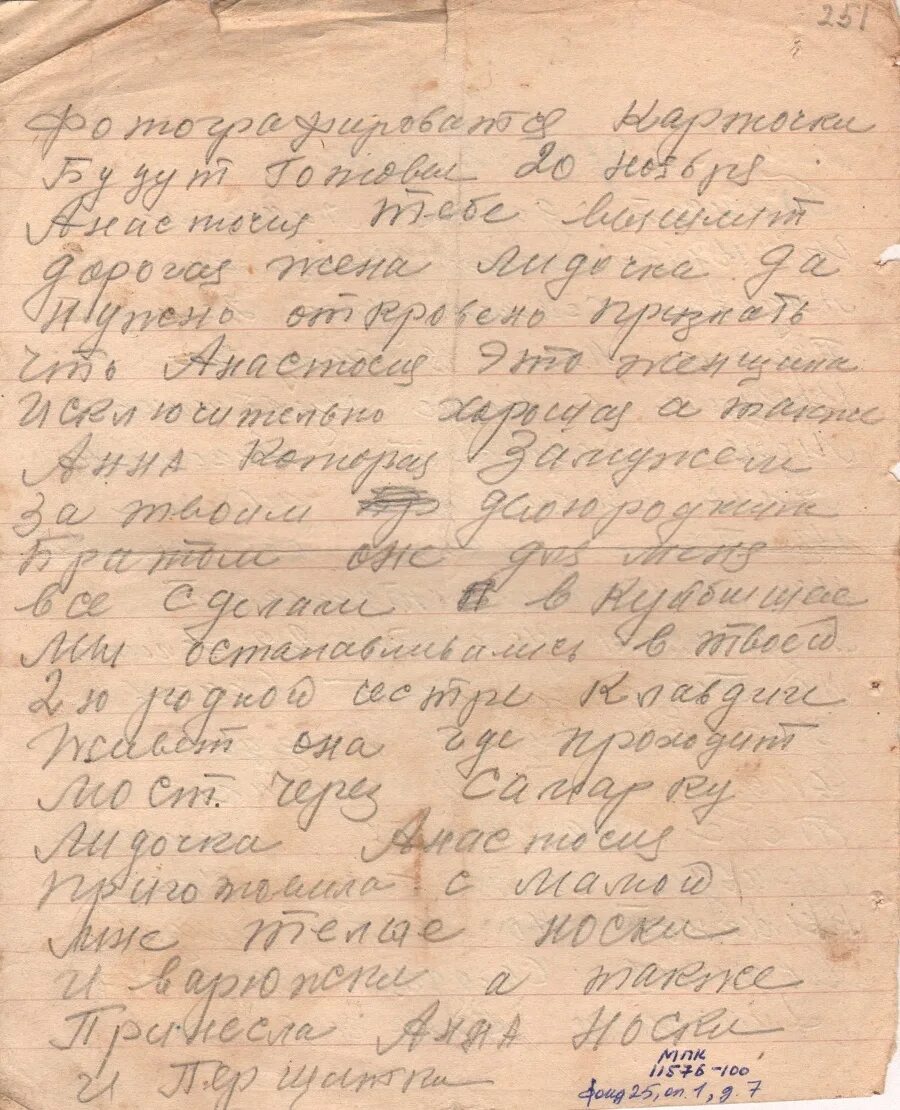 251
Фотографироватся Карточки
Будут Готовы 20 ноября
Анастосия тебе вышлит
дорогая жена Лидочка да
нужно откровено признать
что Анастосия Это женщина
Исключительно хорошая а также
Анна Которая Замужем
За твоим двоюродным
Братом оне для меня
все сделали в Куйбышеве
Мы останавливались в твоей
2ю родной сестре Клавдии
Живет она где проходит
Мост через Самарку
Лидочка Анастосия
приготовила с Мамой
мне теплые носки
и варюжки а также
Принесла Анна Носки
и Першатки
МПК
11576-100
фонд 25, оп. 1, д. 7